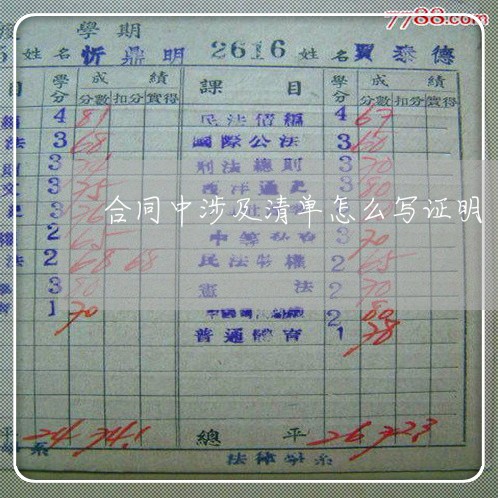 7788.com
學期
姓名 忻鼎明 2616 姓名 賈泰德
目 學分 成績 課目 學分 成績
分數 扣分 實得 分數 扣分 實得
4 81 民法債編 4 67
法 3 68 國際公法 3 60
3 刑法總則 3 70
3 75 西洋通史 3 80
合同中涉及清单怎么写证明
2 65 3 70
法 2 68 68 民法物權 2 65
3 80 憲法 2 70
1 70 2 80
普通體育 1 78
平 24 74.1 總平 26 72.3
系 法律學系